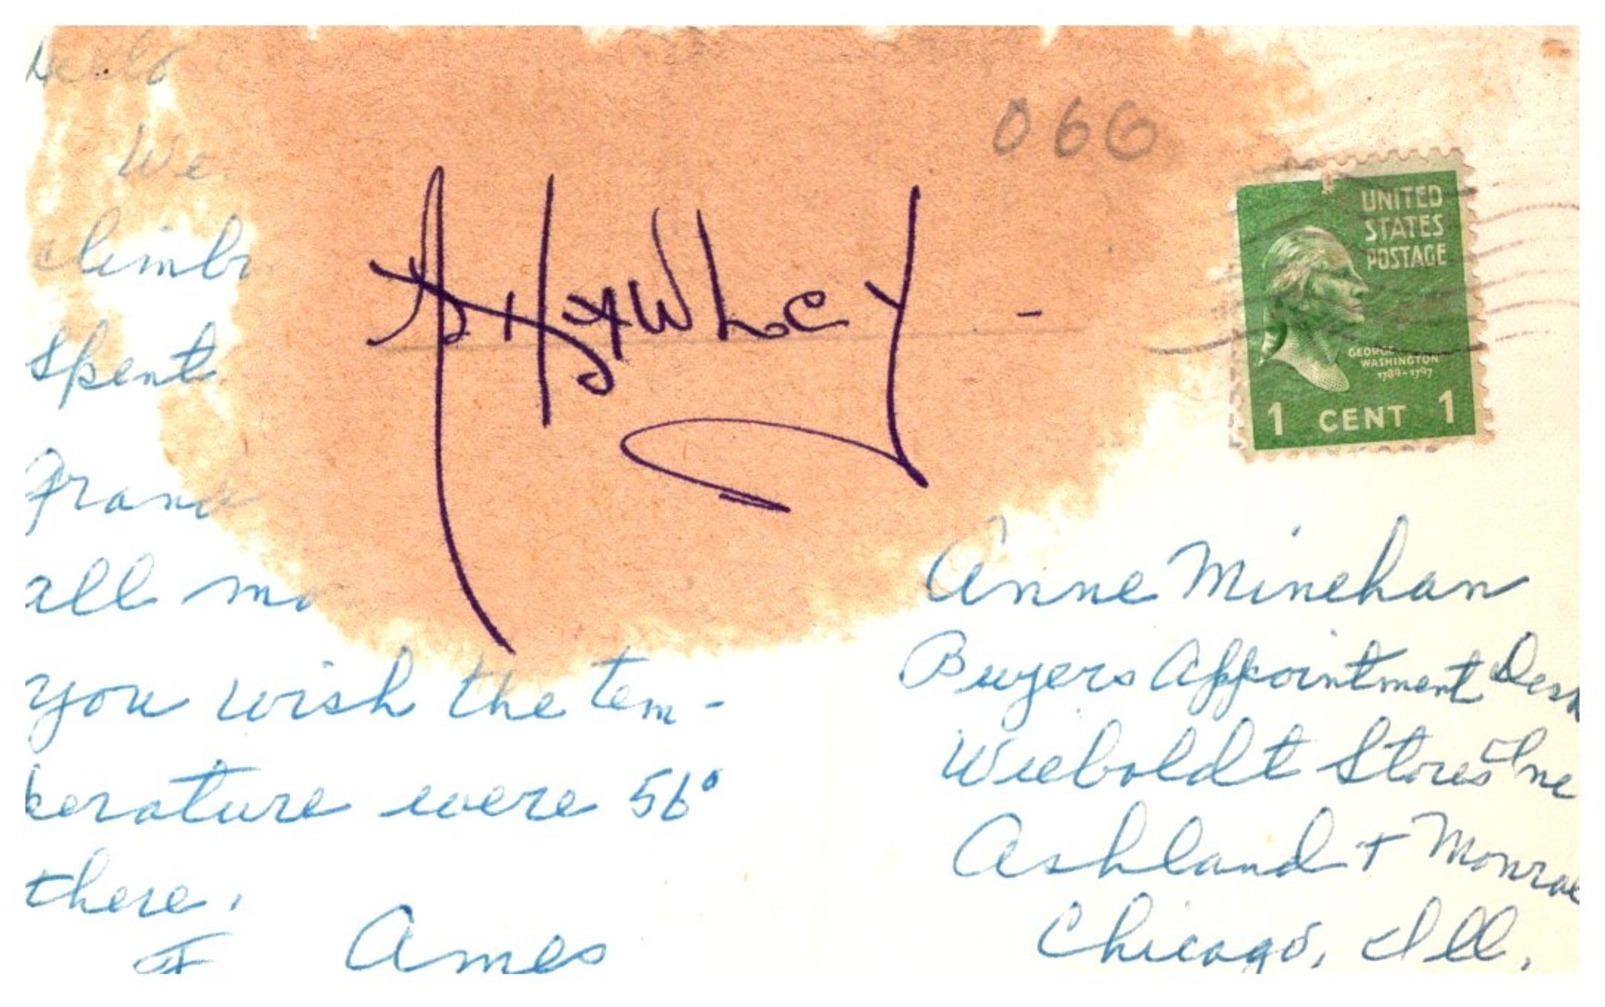 Hello
We
climb
spent
Grand
all mo
you wish the tem-
perature were 56°
there.
Ames
066
A Hawley -
UNITED
STATES
POSTAGE
GEORGE
WASHINGTON
1789-1797
1 CENT 1
Anne Minehan
Buyers Appointment Desk
Wieboldt Stores Inc
Ashland + Monroe
Chicago, Ill.